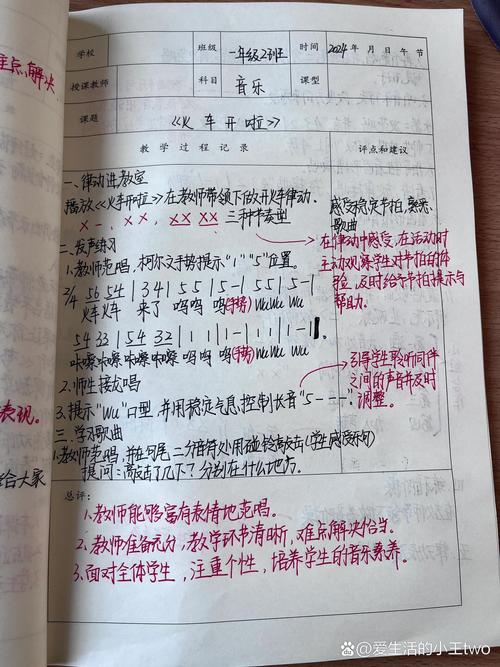 重点解决
表现。
给大家
学校
班级
一年级2班
时间
2024年 月 日 午 节
授课教师
科目
音乐
课型
课题
《火车开啦》
教学过程记录
评点和建议
一、律动进教室
播放《火车开啦》在教师带领下做开火车律动。
X -, XX, XX XX 三种节奏型
感受稳定节拍,熟悉
歌曲
在律动中感受,在活动时
主动观察学生对节拍的体
验,及时给予节拍提示与
帮助。
二、发声练习
1.教师范唱,柯尔文手势提示"1""5"位置。
2/4 56 54 | 3 4 1 | 5 5 | 5 - | 5 5 | 5 - |
火车火车 来了 呜呜 呜(手势) wu wu wu
54 33 | 54 32 | 1 1 | 1 - | 1 1 | 1 - |
咔嚓咔嚓 咔嚓咔嚓 呜呜 呜(手势) wu wu wu
2.师生接龙唱
3.提示"wu"口型,并用稳定气息控制长音"5 - - -"
引导学生聆听同伴
之间的声音并及时
调整。
三、学习歌曲
1.教师范唱,并在句尾二分音符处用碰铃敲击(学生感受乐句)
提问:敲击了几下?分别在什么地方。
总评:
1.教师能够富有表情地范唱。
2.教师准备充分,教学环节清晰,难点解决恰当。
3.面对全体学生,注重个性,培养学生的音乐素养。
百家号/爱生活的小王two